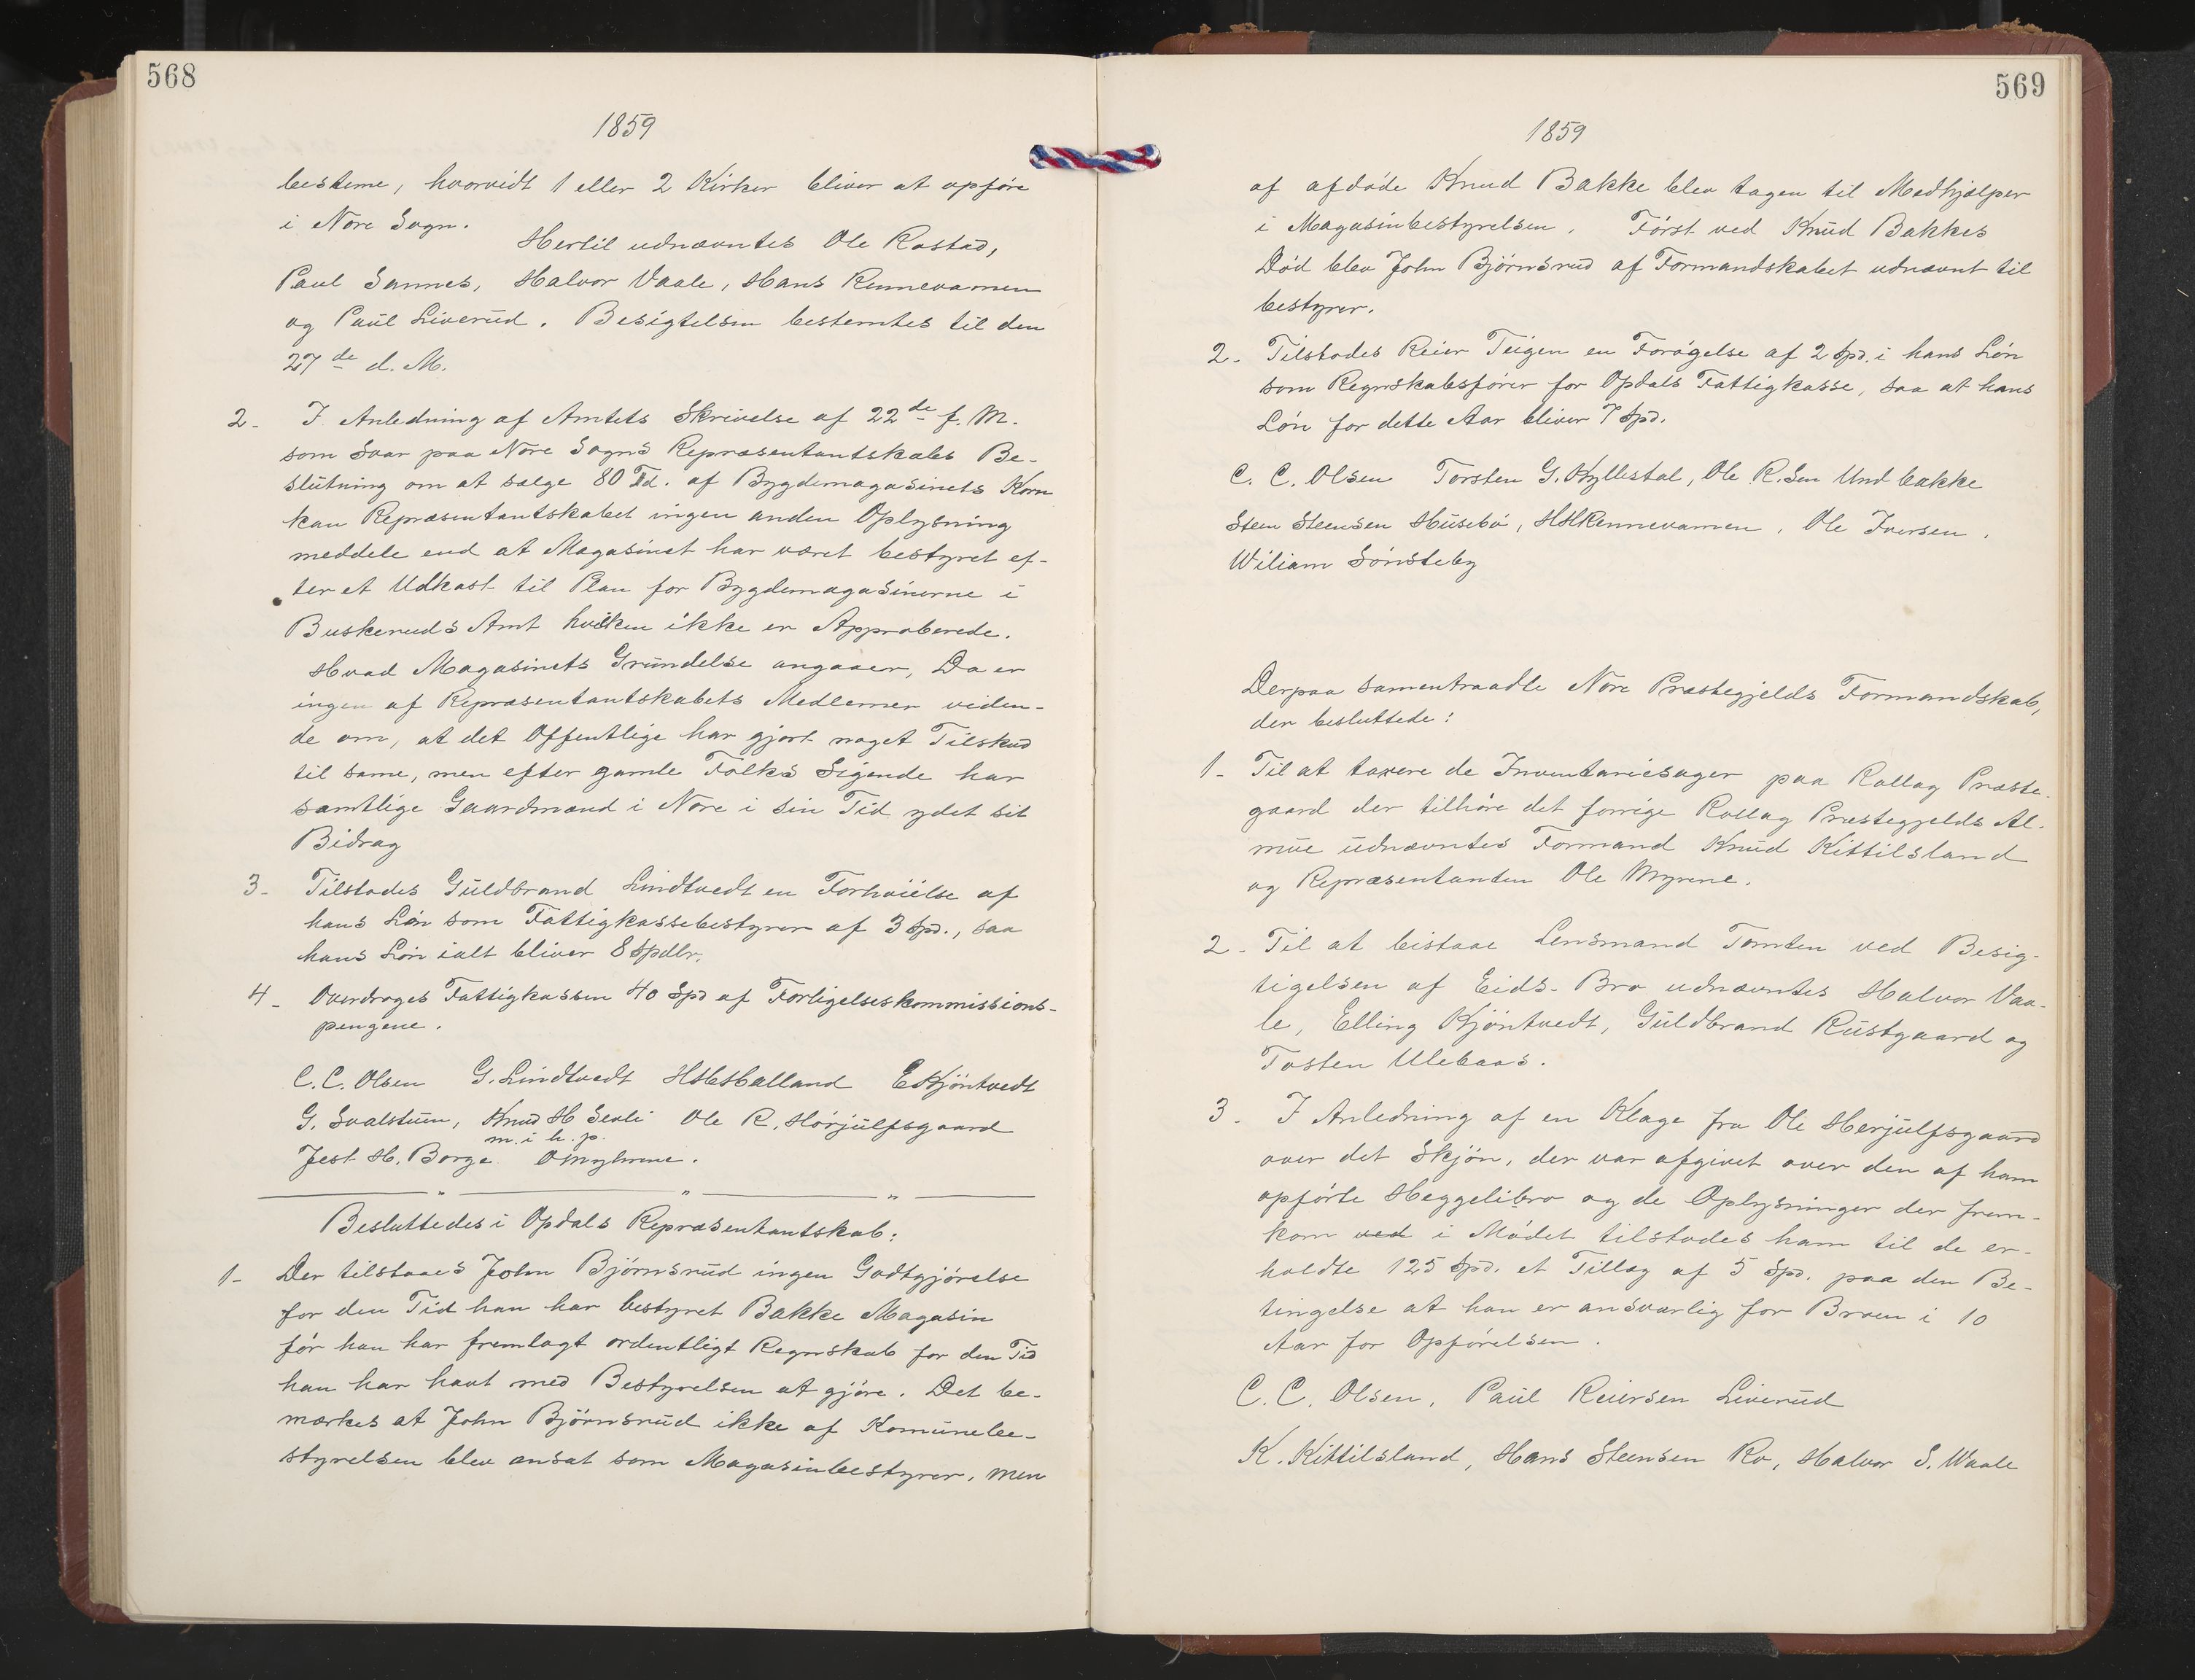 568
1859
besteme, hvorvidt 1 eller 2 Kirker bliver at opføre
i Nore Sogn.
Hertil udnævntes Ole Rostad,
Paul Sannes, Halvor Vaale, Hans Rennevamen
og Paul Liverud. Besigtelsen bestemtes til den
27de d. M.
2- I Anledning af Amtets Skrivelse af 22de f. M.
som Svar paa Nore Sogns Repræsentantskabs Be-
slutning om at sælge 80 Td. af Bygdemagasinets Korn
kan Repræsentantskabet ingen anden Oplysning
meddele end at Magasinet har været bestyret ef-
ter et Udkast til Plan for Bygdemagasinerne i
Buskeruds Amt hvilken ikke er Approberede.
Hvad Magasinets Grundelse angaaer, Da er
ingen af Repræsentantskabets Medlemer viden-
de om, at det Offentlige har gjort noget Tilskud
til same, men efter gamle Folks Sigende har
samtlige Gaardmænd i Nore i sin Tid ydet sit
Bidrag
3- Tilstodes Guldbrand Lindtvedt en Forhøielse af
hans Løn som Fattigkassebestyrer af 3 Spd., saa
hans Løn ialt bliver 8 Spdlr.
4- Overdroges Fattigkassen 40 Spd af Forligelseskommissions-
pengene.
C. C. Olsen G. Lindtvedt Halland E Kjøntvedt
G. Svalstuen, Knud H Sevli Ole R. Hørjulfsgaard
m. i h. p.
Jest H. Borge.
Besluttedes i Opdals Repræsentantskab:
1- Der tilstaaes John Bjørnsrud ingen Godtgjørelse
for den Tid han har bestyret Bakke Magasin
før han har fremlagt ordentligt Regnskab for den Tid
han har havt med Bestyrelsen at gjøre. Det be-
mærkes at John Bjørnsrud ikke af Komunebe-
styrelsen blev ansat som Magasinbestyrer, men
569
1859
af afdøde Knud Bakke blev tagen til Medhjælper
i Magasinbestyrelsen. Først ved Knud Bakkes
Død blev John Bjørnsrud af Formandskabet udnævnt til
bestyrer.
2- Tilstodes Reier Teigen en Forøgelse af 2 Spd. i hans Løn
som Regnskabsfører for Opdals Fattigkasse, saa at hans
Løn for dette Aar bliver 7 Spd.
C. C. Olsen Torsten G. Kyllestal, Ole R. Sen Und bakke
Steen Steensen Husebø, HHRennevamen, Ole Iversen.
Wiliam Sønsteby
Derpaa samentraadte Nore Præstegjelds Formandskab,
der besluttede:
1- Til at taxere de Inventariesager paa Rollag Præste-
gaard der tilhøre det forrige Rollag Præstegjelds Al-
mue udnævntes Formand Knud Kittilsland
og Repræsentanden Ole Myrene.
2- Til at bistaae Lensmand Tomten ved Besig-
tigelsen af Eids-Bro udnævntes Halvor Vaa-
le, Elling Kjøntvedt, Guldbrand Rustgaard og
Tosten Ulebaas.
3- I Anledning af en Klage fra Ole Herjulfsgaard
over det Skjøn, der var afgivet over den af ham
opførte Heggelibro og de Oplysninger der frem-
kom ved i Mødet tilstodes ham til de er-
holdte 125 Spd. et Tillæg af 5 Spd. paa den Be-
tingelse at han er ansvarlig for Broen i 10
Aar for Opførelsen.
C. C. Olsen, Paul Reiersen Liverud
K. Kittilsland, Hans Steensen Ro, Halvor S. Waale